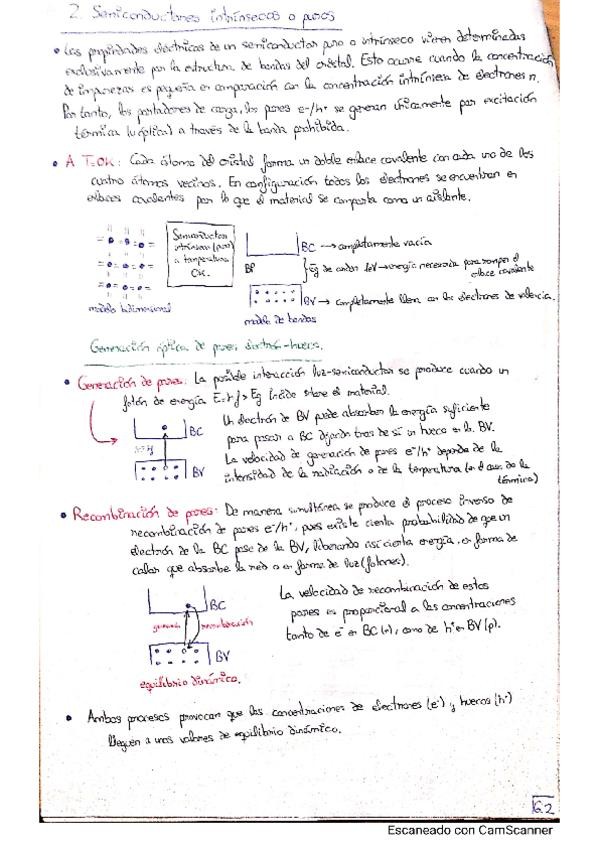 2. Semiconductores intrínsecos o puros
• Las propiedades eléctricas de un semiconductor puro o intrínseco vienen determinadas
exclusivamente por la estructura de bandas del cristal. Esto ocurre cuando la concentración
de impurezas es pequeña en comparación con la concentración intrínseca de electrones n.
Por tanto, los portadores de carga, los pares e-/h+ se generan únicamente por excitación
térmica (u óptica) a través de la banda prohibida.
• A T=0K: Cada átomo del cristal forma un doble enlace covalente con cada uno de los
cuatro átomos vecinos. En configuración todos los electrones se encuentran en
enlaces covalentes por lo que el material se comporta como un aislante.
Semiconductor
intrínseco (puro)
a temperatura
0K.
modelo bidimensional
BC → completamente vacía
BP
Eg de orden 1eV → energía necesaria para romper el
enlace covalente
BV → completamente llena con los electrones de valencia.
modelo de bandas
Generación óptica de pares electrón-hueco.
• Generación de pares: La posible interacción luz-semiconductor se produce cuando un
fotón de energía E=hf > Eg incide sobre el material.
BC
BV
Un electrón de BV puede absorber la energía suficiente
para pasar a BC dejando tras de sí un hueco en la BV.
La velocidad de generación de pares e-/h+ depende de la
intensidad de la radiación o de la temperatura (en el caso de la
térmica)
• Recombinación de pares: De manera simultánea se produce el proceso inverso de
recombinación de pares e-/h+, pues existe cierta probabilidad de que un
electrón de la BC pase de la BV, liberando así cierta energía, en forma de
calor que absorbe la red o en forma de luz (fotones).
BC
recombinación
BV
equilibrio dinámico.
La velocidad de recombinación de estos
pares es proporcional a las concentraciones
tanto de e- en BC (n), como de h+ en BV (p).
• Ambos procesos provocan que las concentraciones de electrones (e-) y huecos (h+)
lleguen a unos valores de equilibrio dinámico.
6.2
Escaneado con CamScanner